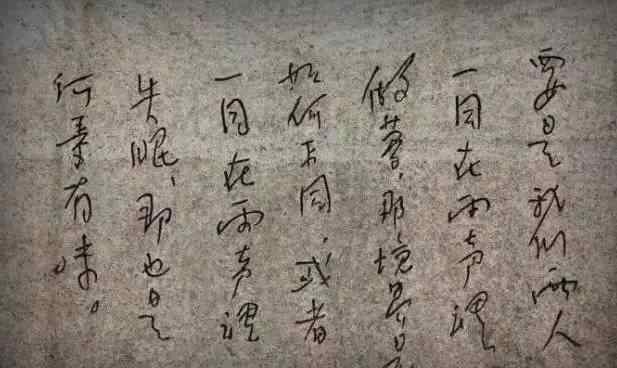 要是我们两人
一同在雨声裡
做夢，那境界是
如何不同，或者
一同在雨声裡
失眠，那也是
何等有味。